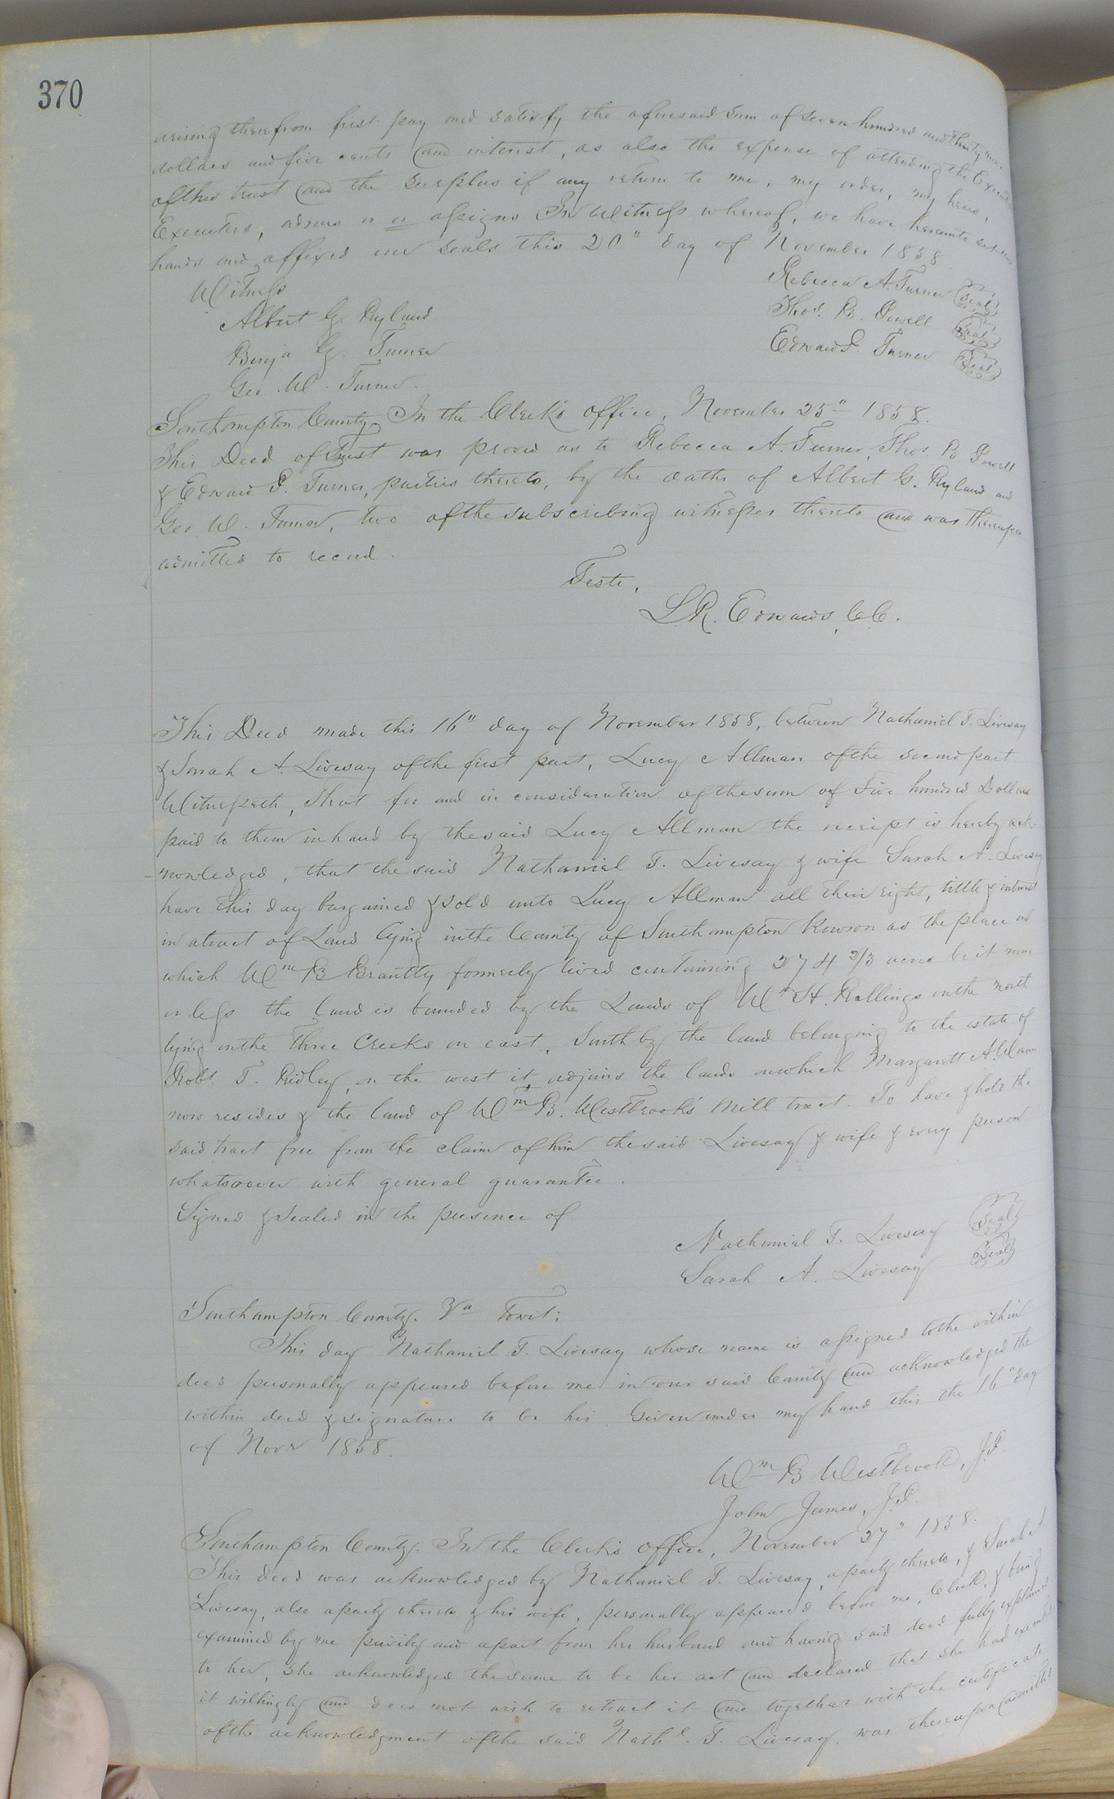 370
arising therefrom first pay and satisfy the aforesaid sum of seven hundred and thirty nine
dollars and five cents and interest, as also the expense of attending the Execution
of this trust and the surplus if any return to me, my order, my heirs,
Executors, admrs or or assigns In Witness whereof, we have hereunto set our
hands and affixed our seals this 20" day of November 1858.
Witness
Rebecca A Turner Seal
Albert G. Ryland
Thos. B. Sewell Seal
Benja G. Turner
Edward P. Turner Seal
Geo. W. Turner.
Southampton County. In the Clerk's office, November 25" 1858.
This Deed of Trust was proved as to Rebecca A. Turner, Thos. B
& Edward P. Turner, parties thereto, by the oaths of Albert G. Ryland and
Geo W. Turner, two of the subscribing witnesses thereto and was thereupon
admitted to record.
Teste,
L.R. Edwards, C.C.
This Deed made this 16" day of November 1858, between Nathaniel T. Livesay
& Sarah A. Livesay of the first part, Lucy Allman of the second part
Witnesseth, That for and in consideration of the sum of Five hundred Dollars
paid to them in hand by the said Lucy Allman the receipt is hereby ack-
nowledged, that the said Nathaniel T. Livesay & wife Sarah A. Livesay
have this day bargained & sold unto Lucy Allman all their right, tittle & interest
in a tract of Land lying in the County of Southampton known as the place on
which Wm B Brantly formerly lived containing 274 2/3 acres be it more
or less the land is bounded by the Lands of Wm H. Rallings on the north
lying on the Three Creeks on east, South by the land belonging to the estate of
Robt. T. Ridley, on the west it adjoins the lands on which Margarett Allman
now resides & the land of Wm B. Westbrook's Mill tract. To have & hold the
said tract free from the claim of him the said Livesay & wife & every person
whatsoever with general guarantee.
Signed & Sealed in the presence of
Nathaniel T. Livesay Seal
Sarah A. Livesay Seal
Southampton County. Va Towit:
This day Nathaniel T. Livesay whose name is assigned to the within
deed personally appeared before me in our said County and acknowledged the
within deed & signature to be his. Given under my hand this the 16" day
of Novr 1858.
Wm B Westbrook, J.P.
John James, J.P.
Southampton County. In the Clerk's Office, November 27" 1858.
This deed was acknowledged by Nathaniel T. Livesay, a party thereto, & Sarah A
Livesay, also a party thereto & his wife, personally appeared before me, Clerk, & being
examined by me privily and apart from her husband and having said deed fully explained
to her, she acknowledged the same to be her act and declared that she had executed
it willingly and does not wish to retract it and together with the certificate
of the acknowledgment of the said Nathl. T. Livesay, was thereupon admitted